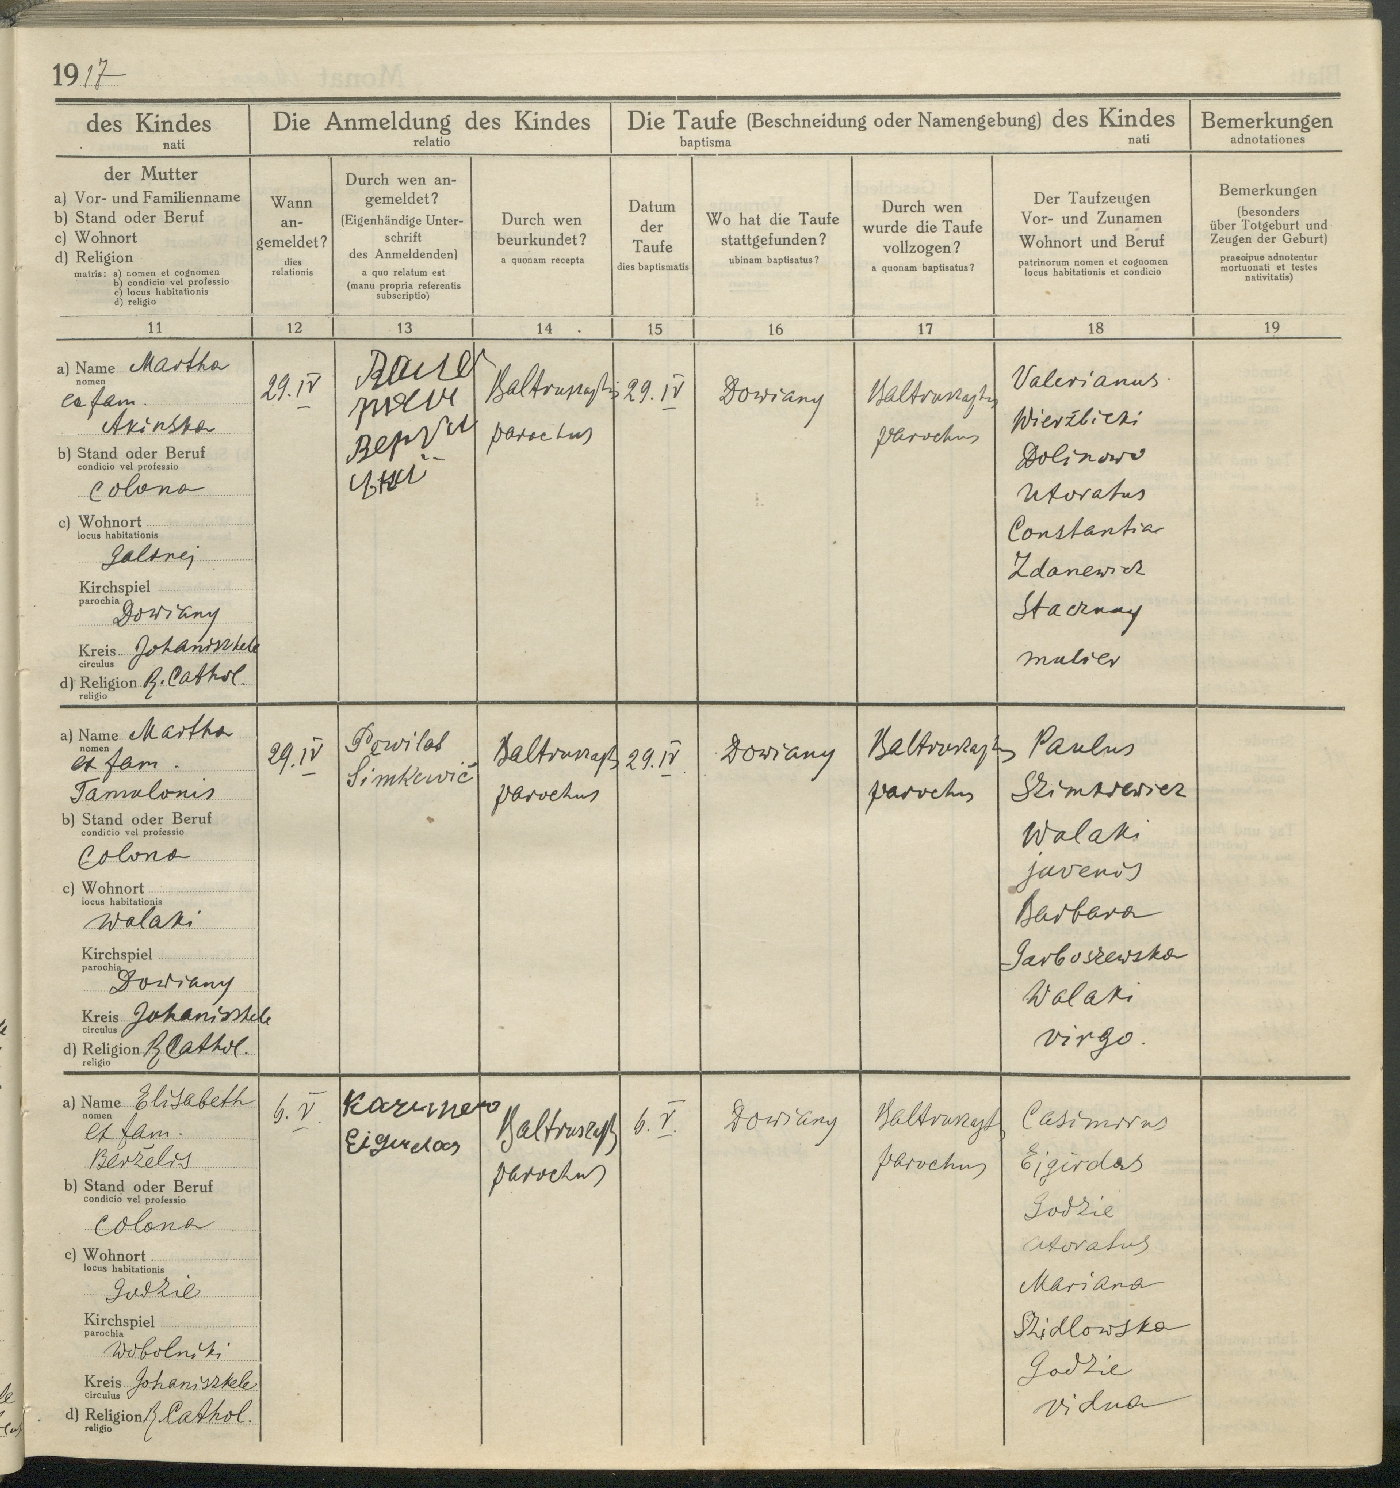 1917
des Kindes
nati
Die Anmeldung des Kindes
relatio
Die Taufe (Beschneidung oder Namengebung) des Kindes
baptisma nati
Bemerkungen
adnotationes
der Mutter
a) Vor- und Familienname
b) Stand oder Beruf
c) Wohnort
d) Religion
matris: a) nomen et cognomen
b) condicio vel professio
c) locus habitationis
d) religio
Wann
an-
gemeldet?
dies
relationis
Durch wen an-
gemeldet?
(Eigenhändige Unter-
schrift
des Anmeldenden)
a quo relatum est
(manu propria referentis
subscriptio)
Durch wen
beurkundet?
a quonam recepta
Datum
der
Taufe
dies baptismatis
Wo hat die Taufe
stattgefunden?
ubinam baptisatus?
Durch wen
wurde die Taufe
vollzogen?
a quonam baptisatus?
Der Taufzeugen
Vor- und Zunamen
Wohnort und Beruf
patrinorum nomen et cognomen
locus habitationis et condicio
Bemerkungen
(besonders
über Totgeburt und
Zeugen der Geburt)
praecipue adnotentur
mortuonati et testes
nativitatis)
11 12 13 14 15 16 17 18 19
a) Name Martha
nomen
ex fam.
Akinska
b) Stand oder Beruf
condicio vel professio
Colona
c) Wohnort
locus habitationis
Galsnej
Kirchspiel
parochia
Dowiany
Kreis Johaniszkele
circulus
d) Religion R. Cathol.
religio
29. IV
Baltruszajtis
parochus
29. IV
Dowiany
Baltruszajtis
parochus
Valerianus
Wierżbicki
Dolinowo
Utoratus
Constantia
Zdanewicz
Staczuny
mulier
a) Name Martha
nomen
ex fam.
Tamulonis
b) Stand oder Beruf
condicio vel professio
Colona
c) Wohnort
locus habitationis
Walaki
Kirchspiel
parochia
Dowiany
Kreis Johaniszkele
circulus
d) Religion R Cathol.
religio
29. IV
Powilas
Simkewič
Baltruszajtis
parochus
29. IV
Dowiany
Baltruszajtis
parochus
Paulus
Szimkiewicz
Walaki
juvenis
Barbara
Garboszewska
Walaki
virgo.
a) Name Elisabeth
nomen
ex fam.
Berżelis
b) Stand oder Beruf
condicio vel professio
Colona
c) Wohnort
locus habitationis
Godzie
Kirchspiel
parochia
Wobolniki
Kreis Johaniszkele
circulus
d) Religion R Cathol.
religio
6. V.
Eigirdas
Baltruszajtis
parochus
6. V.
Dowiany
Baltruszajtis
parochus
Casimirus
Ejgirdas
Godzie
utoratus
Mariana
Szidlowska
Godzie
vidua